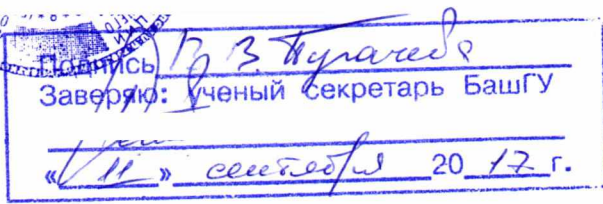 Подпись В. В. Пугачева
Заверяю: Ученый секретарь БашГУ
« 11 » сентября 20 17 г.